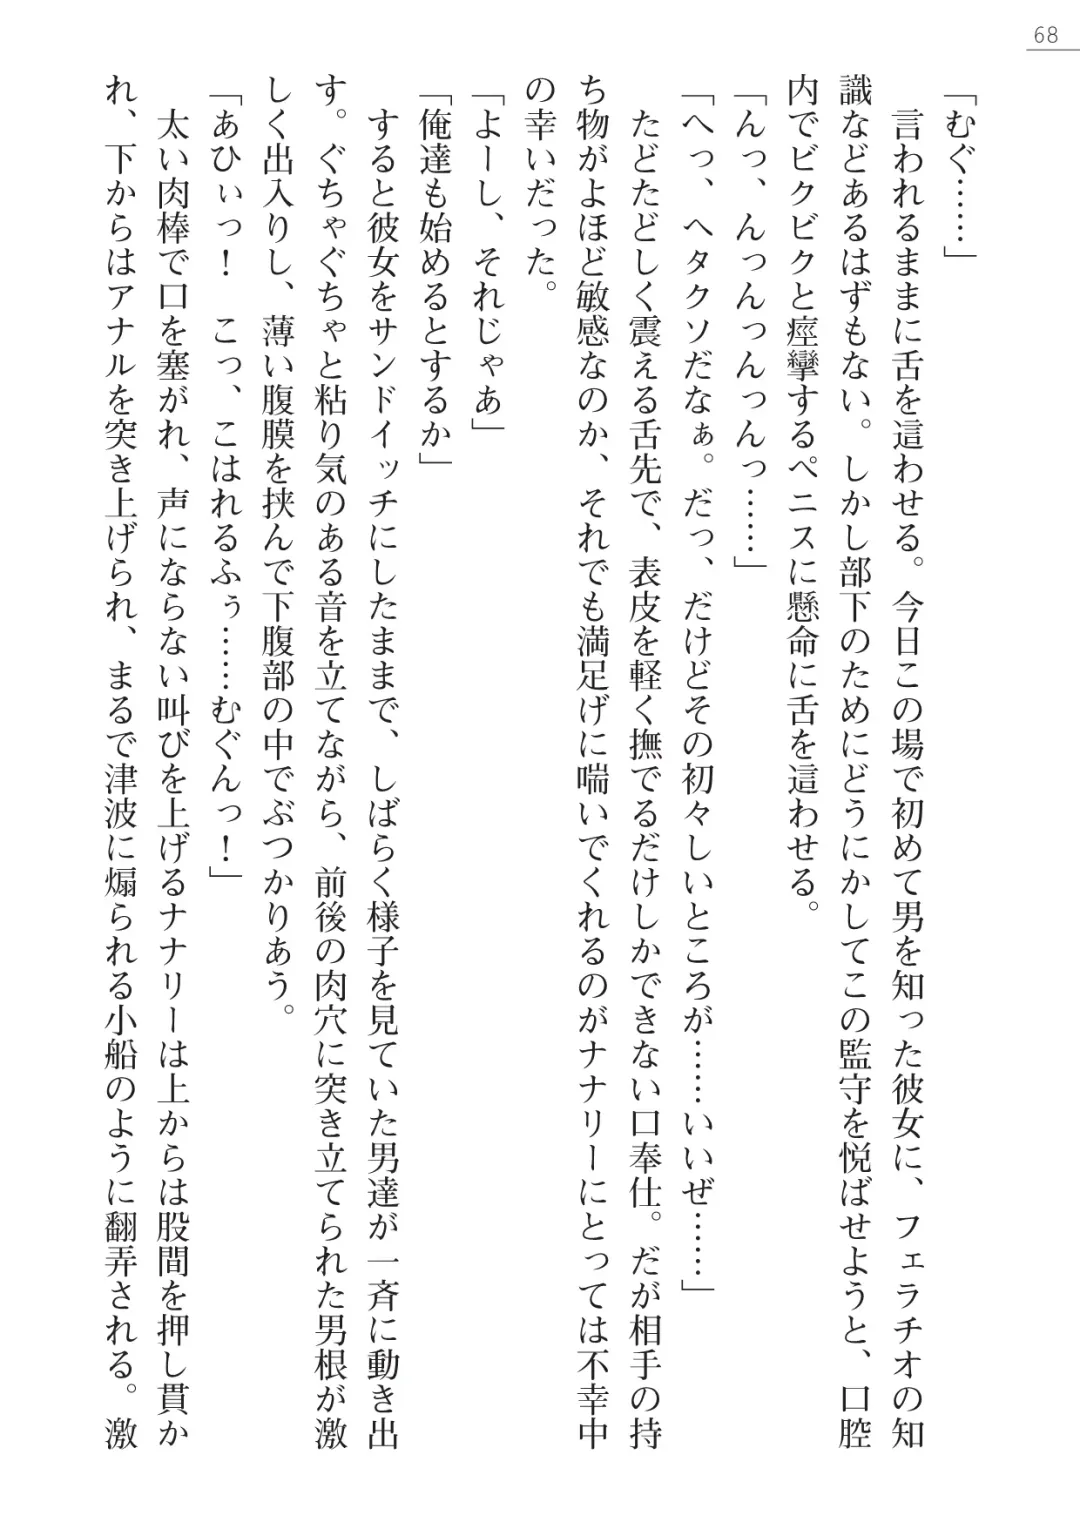 68
「むぐ……」
　言われるままに舌を這わせる。今日この場で初めて男を知った彼女に、フェラチオの知
識などあるはずもない。しかし部下のためにどうにかしてこの監守を悦ばせようと、口腔
内でビクビクと痙攣するペニスに懸命に舌を這わせる。
「んっ、んっんっんっんっ……」
「へっ、ヘタクソだなぁ。だっ、だけどその初々しいところが……いいぜ……」
　たどたどしく震える舌先で、表皮を軽く撫でるだけしかできない口奉仕。だが相手の持
ち物がよほど敏感なのか、それでも満足げに喘いでくれるのがナナリーにとっては不幸中
の幸いだった。
「よーし、それじゃあ」
「俺達も始めるとするか」
　すると彼女をサンドイッチにしたままで、しばらく様子を見ていた男達が一斉に動き出
す。ぐちゃぐちゃと粘り気のある音を立てながら、前後の肉穴に突き立てられた男根が激
しく出入りし、薄い腹膜を挟んで下腹部の中でぶつかりあう。
「あひぃっ！　こっ、こはれるふぅ……むぐんっ！」
　太い肉棒で口を塞がれ、声にならない叫びを上げるナナリーは上からは股間を押し貫か
れ、下からはアナルを突き上げられ、まるで津波に煽られる小船のように翻弄される。激